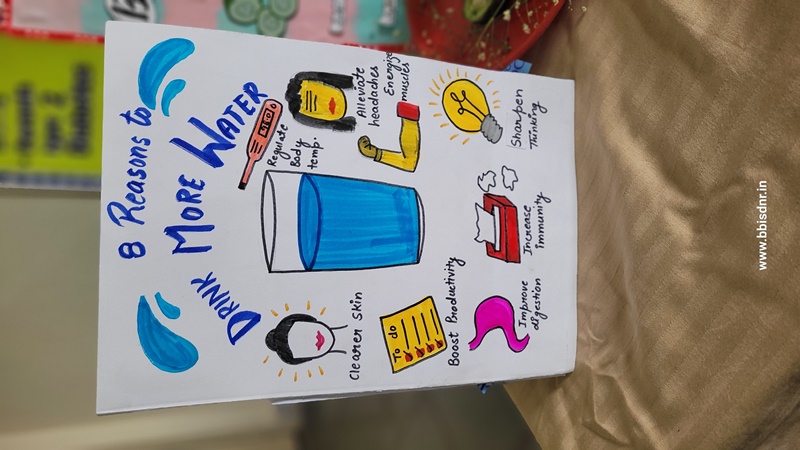 8 Reasons to
DRINK MORE WATER
Regulate
Body
temp.
Alleviate
headaches
Energize
muscles
Sharpen
Thinking
Increase
immunity
Improve
digestion
Boost Productivity
To do
Clearer Skin
www.bbisdnr.in